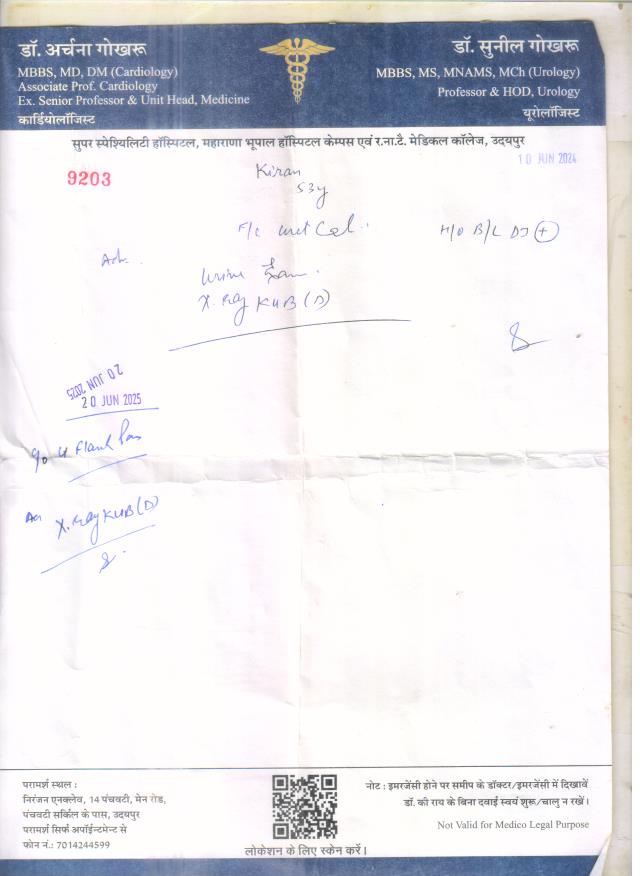 डॉ. अर्चना गोखरू
MBBS, MD, DM (Cardiology)
Associate Prof. Cardiology
Ex. Senior Professor & Unit Head, Medicine
कार्डियोलॉजिस्ट
डॉ. सुनील गोखरू
MBBS, MS, MNAMS, MCh (Urology)
Professor & HOD, Urology
यूरोलॉजिस्ट
सुपर स्पेश्यिलिटी हॉस्पिटल, महाराणा भूपाल हॉस्पिटल केम्पस एवं र.ना.टै. मेडिकल कॉलेज, उदयपुर
10 JUN 2024
9203
Kiran
53y
H/O B/L DJ +
Urine
X.Ray KUB (D)
20 JUN 2025
20 JUN 2025
Flank
X.Ray KUB (D)
परामर्श स्थल :
निरंजन एनक्लेव, 14 पंचवटी, मेन रोड,
पंचवटी सर्किल के पास, उदयपुर
परामर्श सिर्फ अपॉईन्टमेन्ट से
फोन नं.: 7014244599
लोकेशन के लिए स्केन करें।
नोट : इमरजेंसी होने पर समीप के डॉक्टर/इमरजेंसी में दिखावें
डॉ. की राय के बिना दवाई स्वयं शुरू/चालु न रखें।
Not Valid for Medico Legal Purpose